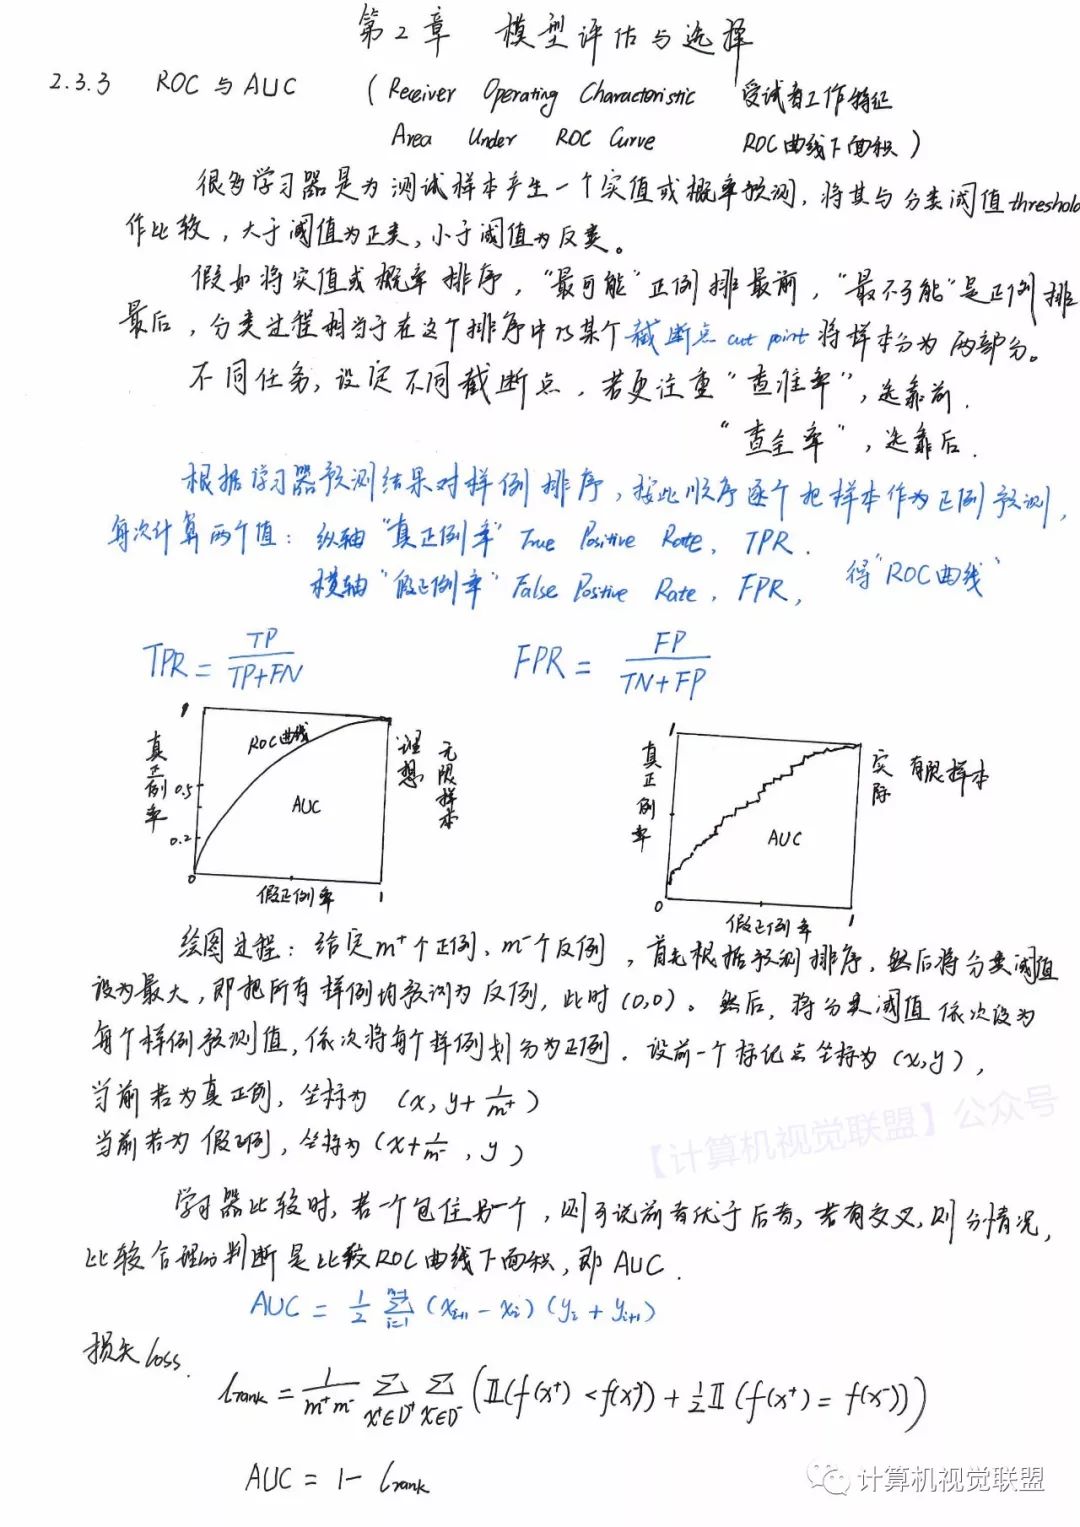 第2章 模型评估与选择
2.3.3 ROC与AUC (Receiver Operating Characteristic 受试者工作特征
Area Under ROC Curve ROC曲线下面积)
很多学习器是为测试样本产生一个实值或概率预测,将其与分类阈值threshold
作比较,大于阈值为正类,小于阈值为反类。
假如将实值或概率排序,"最可能"正例排最前,"最不可能"是正例排
最后,分类过程相当于在这个排序中以某个截断点cut point将样本分为两部分。
不同任务,设定不同截断点,若更注重"查准率",选靠前.
"查全率",选靠后.
根据学习器预测结果对样例排序,按此顺序逐个把样本作为正例预测,
每次计算两个值: 纵轴"真正例率" True Positive Rate, TPR.
横轴"假正例率" False Positive Rate, FPR, 得"ROC曲线"
TPR = TP/(TP+FN) FPR = FP/(TN+FP)
1
真正例率
0.5
0.2
0
ROC曲线
AUC
假正例率
1
理想
无限样本
1
真正例率
0
AUC
假正例率
1
实际
有限样本
绘图过程: 给定m⁺个正例、m⁻个反例,首先根据预测排序,然后将分类阈值
设为最大,即把所有样例均预测为反例,此时(0,0)。然后,将分类阈值依次设为
每个样例预测值,依次将每个样例划分为正例.设前一个标记点坐标为(x,y),
当前若为真正例,坐标为 (x, y+1/m⁺)
当前若为假正例,坐标为(x+1/m⁻, y)
【计算机视觉联盟】公众号
学习器比较时,若一个包住另一个,则可说前者优于后者,若有交叉,则分情况,
比较合理的判断是比较ROC曲线下面积,即AUC.
AUC = 1/2 ∑_{i=1}^{m-1} (x_{i+1} - x_i)(y_i + y_{i+1})
损失loss.
ℓrank = 1/(m⁺m⁻) ∑_{x⁺∈D⁺} ∑_{x⁻∈D⁻} (𝕀(f(x⁺) < f(x⁻)) + 1/2 𝕀(f(x⁺) = f(x⁻)))
AUC = 1 - ℓrank
计算机视觉联盟